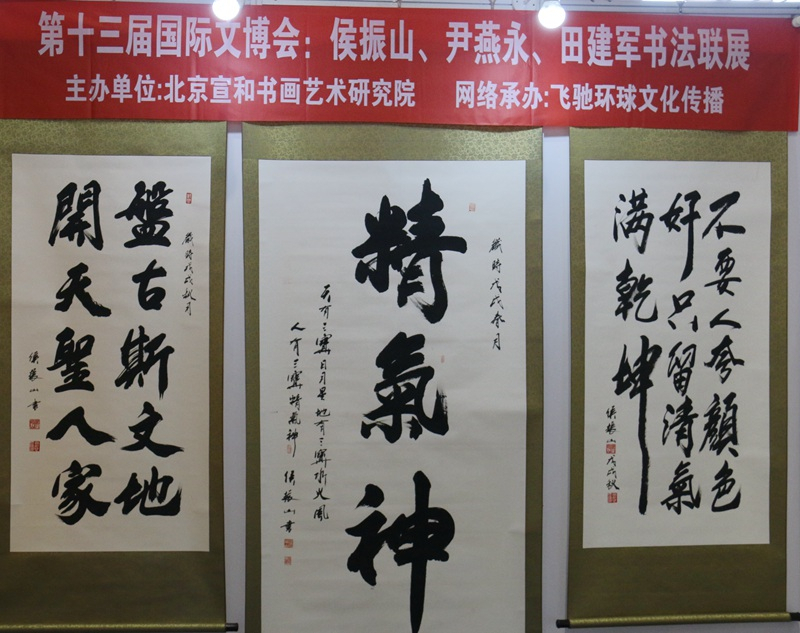 第十三届国际文博会：侯振山、尹燕永、田建军书法联展
主办单位:北京宣和书画艺术研究院 网络承办:飞驰环球文化传播
歲時戊戌秋月
盤古斯文地
開天聖人家
侯振山書
歲時戊戌
精氣神
天有三寶日月星地有三寶水火風
人有三寶精氣神 侯振山書
不要人夸顏色
好只留清氣
满乾坤
侯振山戊戌秋